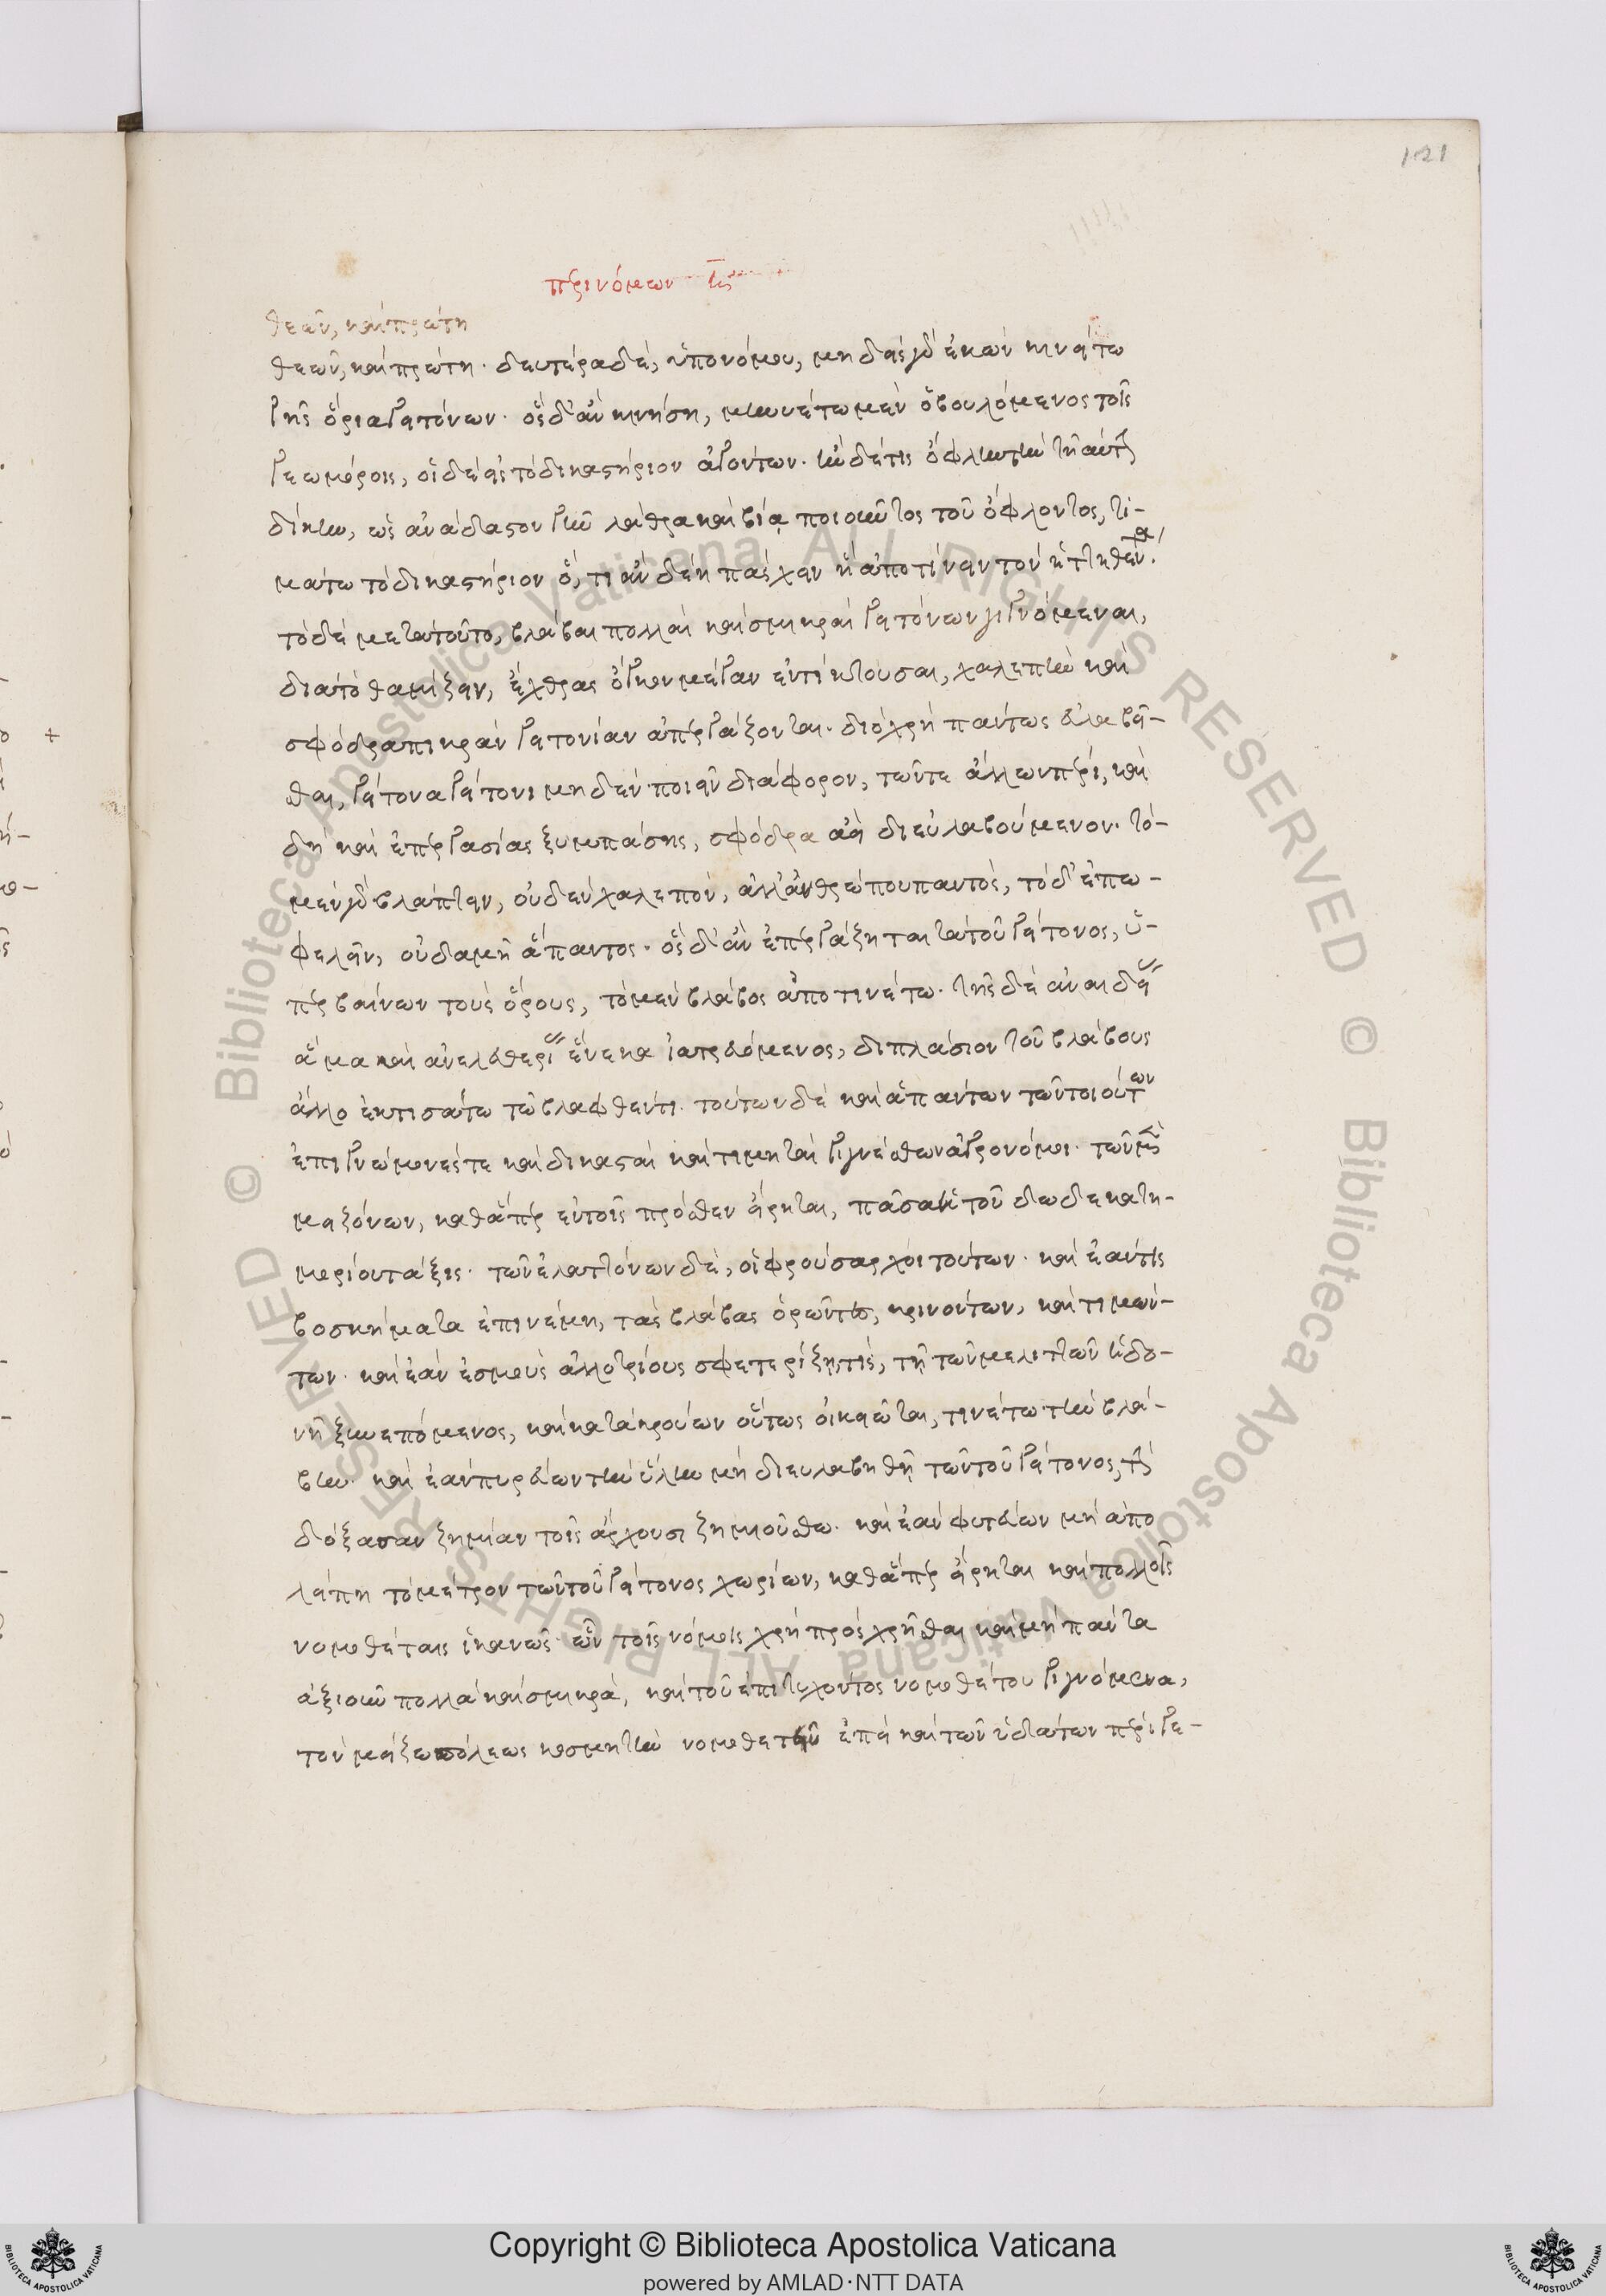 121
περὶ νόμων
θεῶν, καὶ πρώτη
θεῶν, καὶ πρώτη· δευτέρα δὲ, ὑπὸ νόμου, μηδεὶς γὰρ ἑκὼν κινείτω
γῆς ὅρια γειτόνων· ὃς δ' ἂν κινήση, μηνυέτω μὲν ὁ βουλόμενος τοῖς
γεωμόροις, οἱ δὲ εἰς τὸ δικαστήριον ἀγόντων· ἢν δέ τις ὄφλη τὴν τοιαύτην
δίκην, ὡς ἀνάδαστον γῆν λάθρα καὶ βίᾳ ποιοῦντος τοῦ ὀφλόντος, τι-
μάτω τὸ δικαστήριον ὅ, τι ἂν δέη πάσχειν ἢ ἀποτίνειν τὸν ἡττηθέντα·
τὸ δὲ μετὰ τοῦτο, βλάβαι πολλαὶ καὶ σμικραὶ γειτόνων γιγνόμεναι,
διὰ τὸ θαμίζειν, ἔχθρας ὄγκον μέγαν ἐντίκτουσαι, χαλεπὴν καὶ
σφόδρα πικρὰν γειτονίαν ἀπεργάζονται· διὸ χρὴ πάντως εὐλαβεῖ-
σθαι, γείτονα γείτονι μηδὲν ποιεῖν διάφορον, τῶν τε ἄλλων πέρι, καὶ
δὴ καὶ ἐπεργασίας ξυμπάσης, σφόδρα ἀεὶ διευλαβούμενον· τὸ-
μὲν γὰρ βλάπτειν, οὐδὲν χαλεπὸν, ἀλλ' ἀνθρώπου παντὸς, τὸ δ' ἐπω-
φελεῖν, οὐδαμῆ ἅπαντος· ὃς δ' ἂν ἐπεργάζηται τὰ τοῦ γείτονος, ὑ-
περβαίνων τοὺς ὅρους, τὸ μὲν βλάβος ἀποτινέτω· τῆς δὲ ἀναιδείας
ἅμα καὶ ἀνελευθερίας ἕνεκα ἰατρευόμενος, διπλάσιον τοῦ βλάβους
ἄλλο ἐκτισάτω τῷ βλαφθέντι· τούτων δὲ καὶ ἁπάντων τῶν τοιούτων
ἐπιγνώμονές τε καὶ δικασταὶ καὶ τιμηταὶ γιγνέσθων ἀγρονόμοι· τῶν μὲν
μειζόνων, καθάπερ ἐν τοῖς πρόσθεν εἴρηται, πᾶσα ἡ τοῦ δωδεκατη-
μορίου τάξις· τῶν ἐλαττόνων δὲ, οἱ φρούραρχοι τούτων· καὶ ἐάν τις
βοσκήματα ἐπινέμη, τὰς βλάβας ὁρῶντες, κρινόντων, καὶ τιμών-
των· καὶ ἐὰν ἑσμοὺς ἀλλοτρίους σφετερίζη τις, τῆ τῶν μελιττῶν ἡδο-
νῆ ξυνεπόμενος, καὶ κατακρούων οὕτως οἰκειῶται, τινέτω τὴν βλά-
βην· καὶ ἐὰν πυρεύων τὴν ὕλην μὴ διευλαβηθῆ τῶν τοῦ γείτονος, τὴν
δόξασαν ζημίαν τοῖς ἄρχουσι ζημιούσθω· καὶ ἐὰν φυτεύων μὴ ἀπο
λείπη τὸ μέτρον τῶν τοῦ γείτονος χωρίων, καθάπερ εἴρηται καὶ πολλοῖς
νομοθέταις ἱκανῶς· ὧν τοῖς νόμοις χρὴ προσχρῆσθαι καὶ μὴ πάντα
ἀξιοῦν πολλὰ καὶ σμικρὰ, καὶ τοῦ ἐπιτυχόντος νομοθέτου γιγνόμενα,
τὸν μείζω πόλεως κοσμητὴν νομοθετεῖν ἐπεὶ καὶ τῶν ὑδάτων πέρι γε-
Copyright © Biblioteca Apostolica Vaticana
powered by AMLAD·NTT DATA
© Biblioteca Apostolica Vaticana ALL RIGHTS RESERVED
© Biblioteca Apostolica Vaticana ALL RIGHTS RESERVED